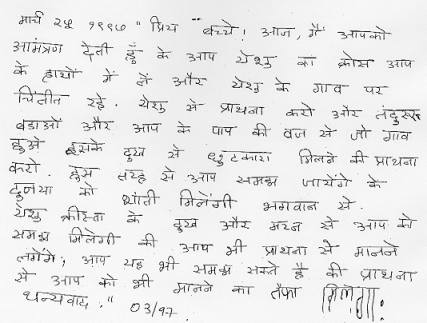 मार्च २५ १९९७ "प्रिय" बच्चे! आज, मैं आपको
आमंत्रण देती हुँ के आप येशु का क्रोस आप
के हाथों में लें और येशु के गाव पर
चिंतीत रहे. येशु से प्राथना करो और तंदुरुस्त
बडाओं और आप के पाप की वज से जो गाव
हुअे इसके दुख से छुटकारा मिलने की प्राथना
करो. इस तरह से आप समझ जायेंगे के
दुनया को शांती मिलेंगी भगवान से.
येशु क्रीस्ता के दुख और मरन से आप को
समझ मिलेगी की आप भी प्राथना से मानने
लगेंगे; आप यह भी समझ सक्ते है की प्राथना
से आप को भी मानने का तोफा मिलेगा!
धन्यवाद." 03/97.